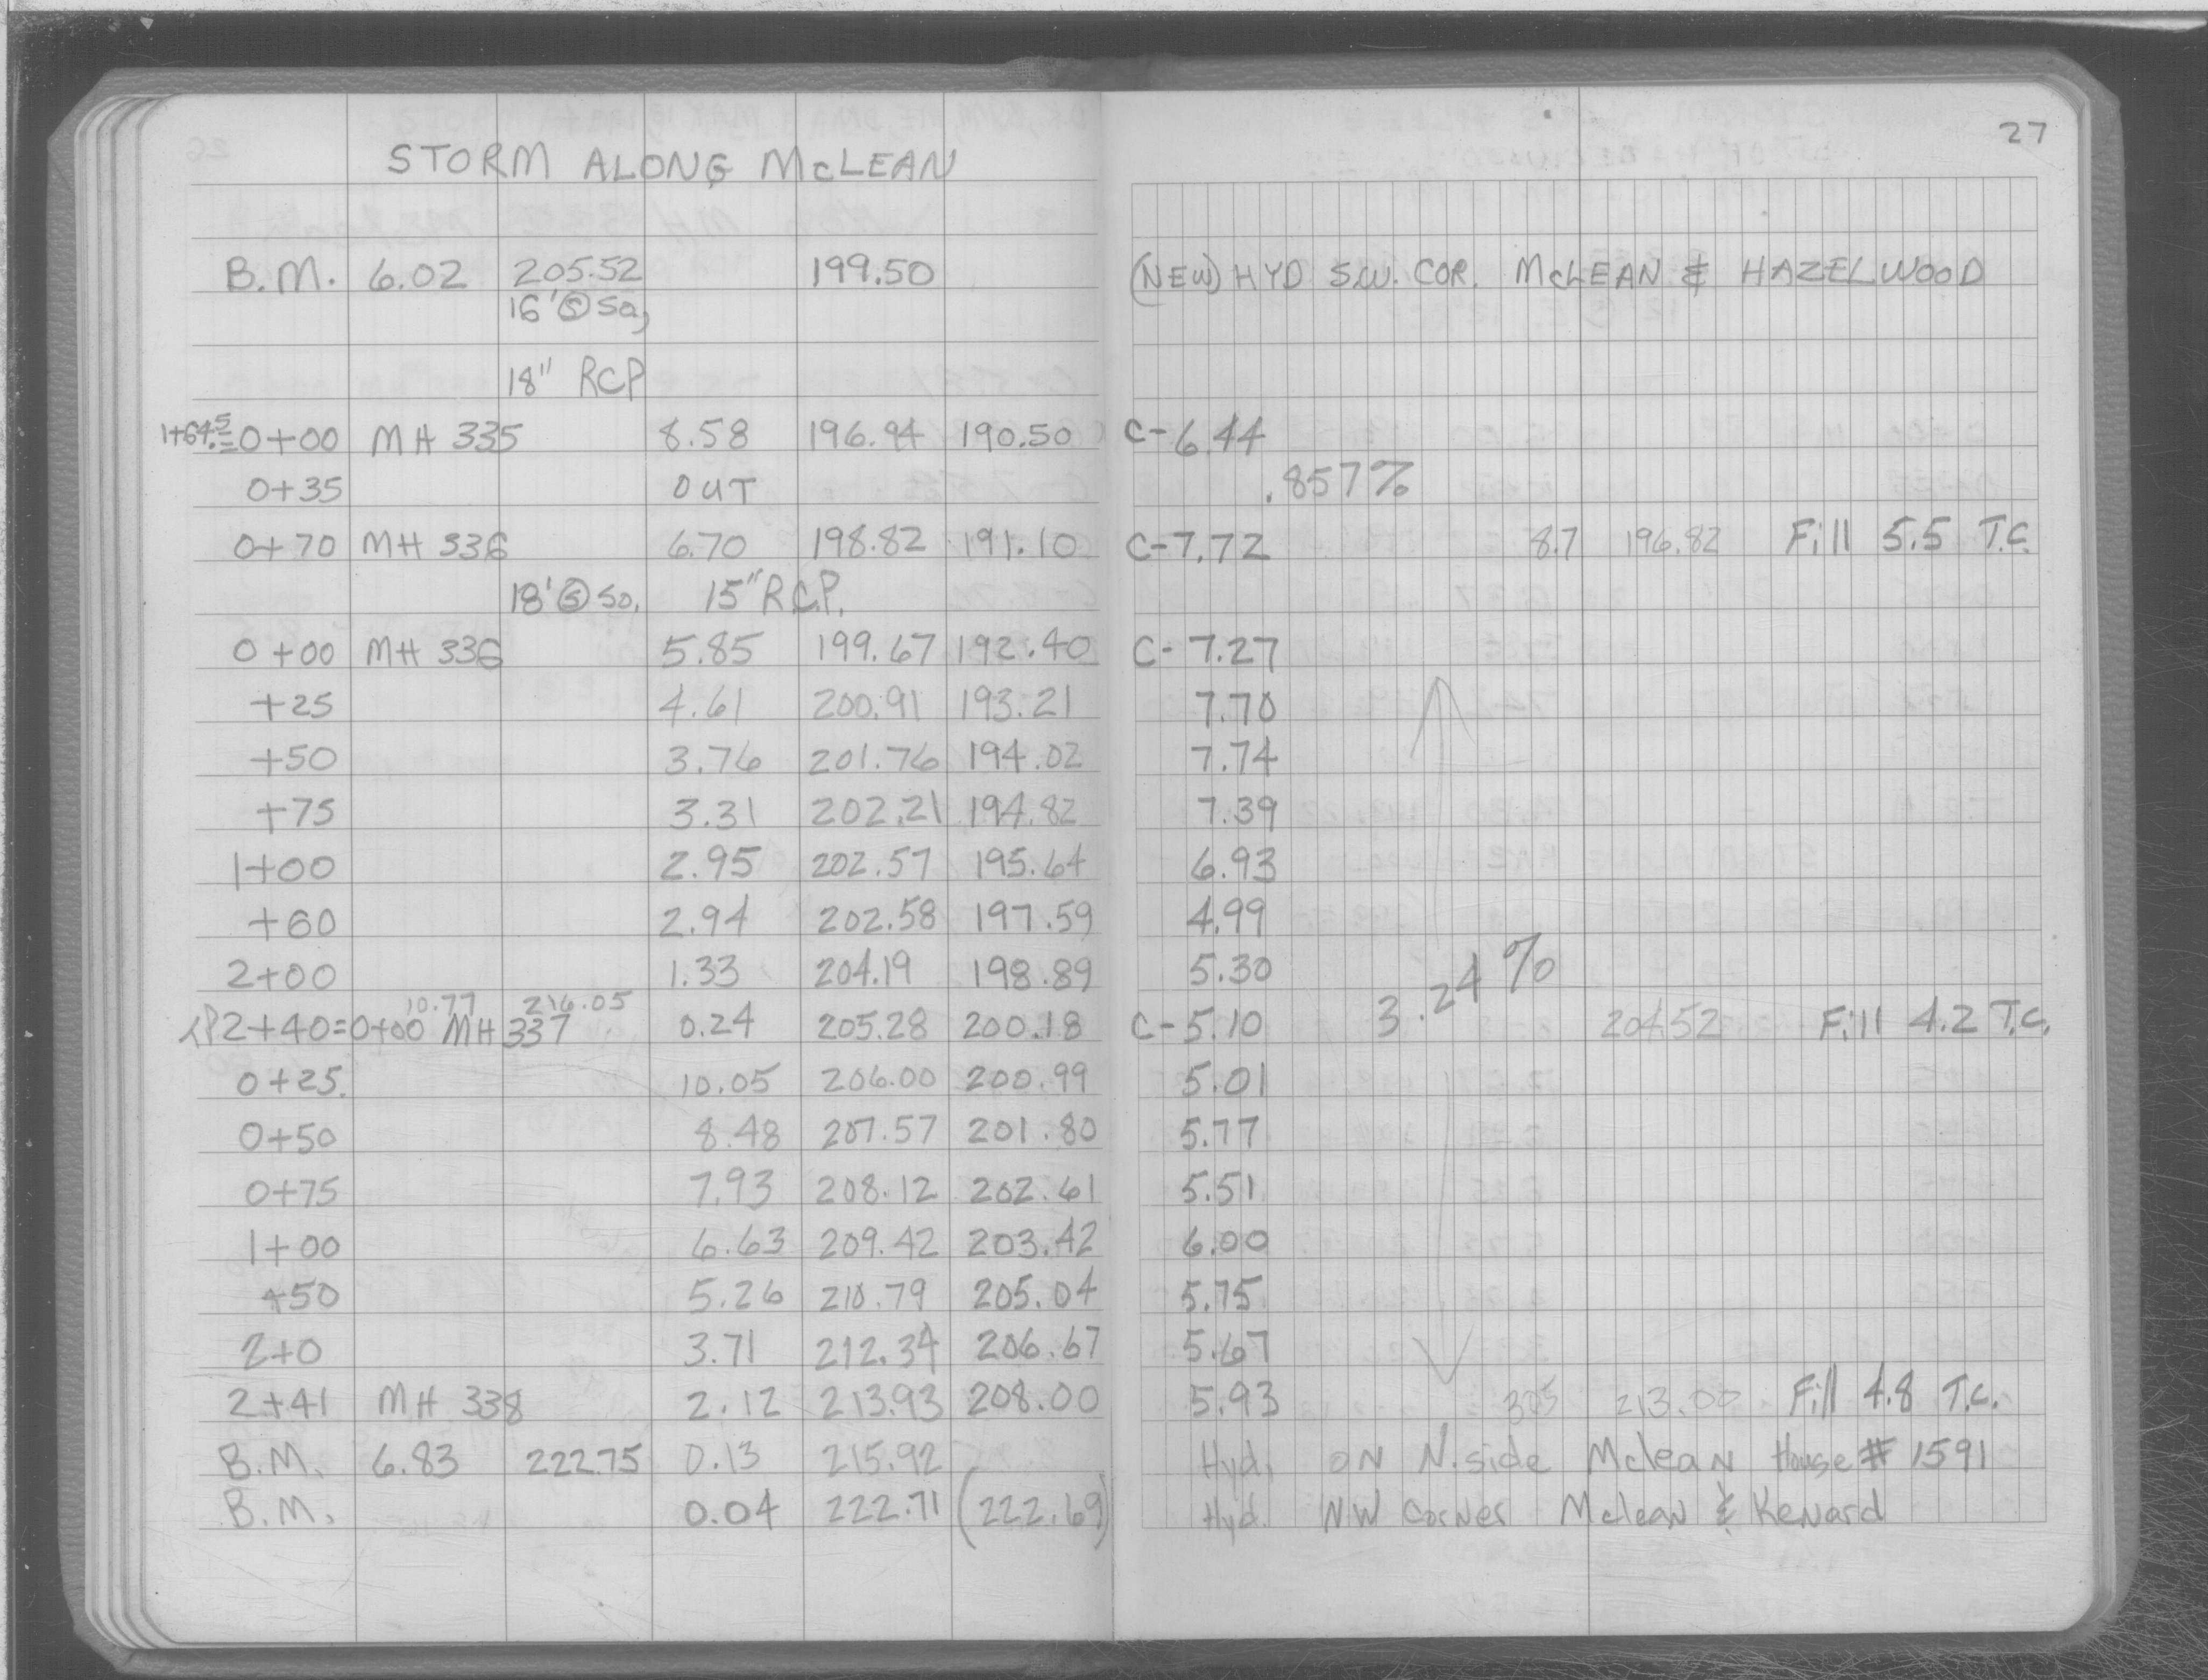 27
STORM ALONG McLEAN
B.M. 6.02 205.52 199.50 (NEW) HYD S.W. COR. McLEAN & HAZELWOOD
16' @ So,
18" RCP
1+64.5= 0+00 MH 335 8.58 196.94 190.50 C- 6.44
0+35 OUT .857%
0+70 MH 336 6.70 198.82 191.10 C- 7.72 8.7 196.82 Fill 5.5 T.C.
18' @ So. 15" R.C.P.
0+00 MH 336 5.85 199.67 192.40 C- 7.27
+25 4.61 200.91 193.21 7.70
+50 3.76 201.76 194.02 7.74
+75 3.31 202.21 194.82 7.39
1+00 2.95 202.57 195.64 6.93
+60 2.94 202.58 197.59 4.99
2+00 1.33 204.19 198.89 5.30
10.77 216.05 3.24%
2+40=0+00 MH 337 0.24 205.28 200.18 C- 5.10 204.52 Fill 4.2 T.C.
0+25. 10.05 206.00 200.99 5.01
0+50 8.48 207.57 201.80 5.77
0+75 7.93 208.12 202.61 5.51
1+00 6.63 209.42 203.42 6.00
+50 5.26 210.79 205.04 5.75
2+0 3.71 212.34 206.67 5.67
2+41 MH 338 2.12 213.93 208.00 5.93 305 213.00 Fill 4.8 T.C.
B.M. 6.83 222.75 0.13 215.92 Hyd. ON N. side Mclean House # 1591
B.M. 0.04 222.71 (222.69) Hyd. NW Corner Mclean & Kenard